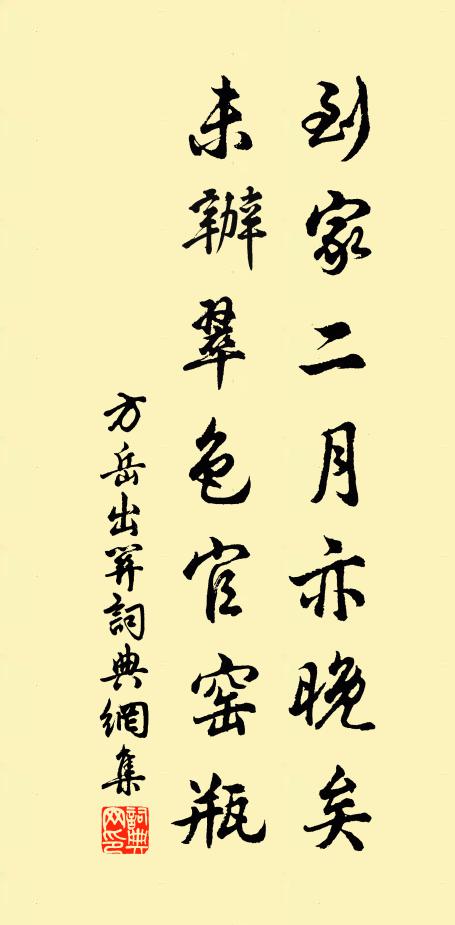 到家二月亦晚矣
未辦翠色官窑瓶
方岳出關詞典網集
詞典网印